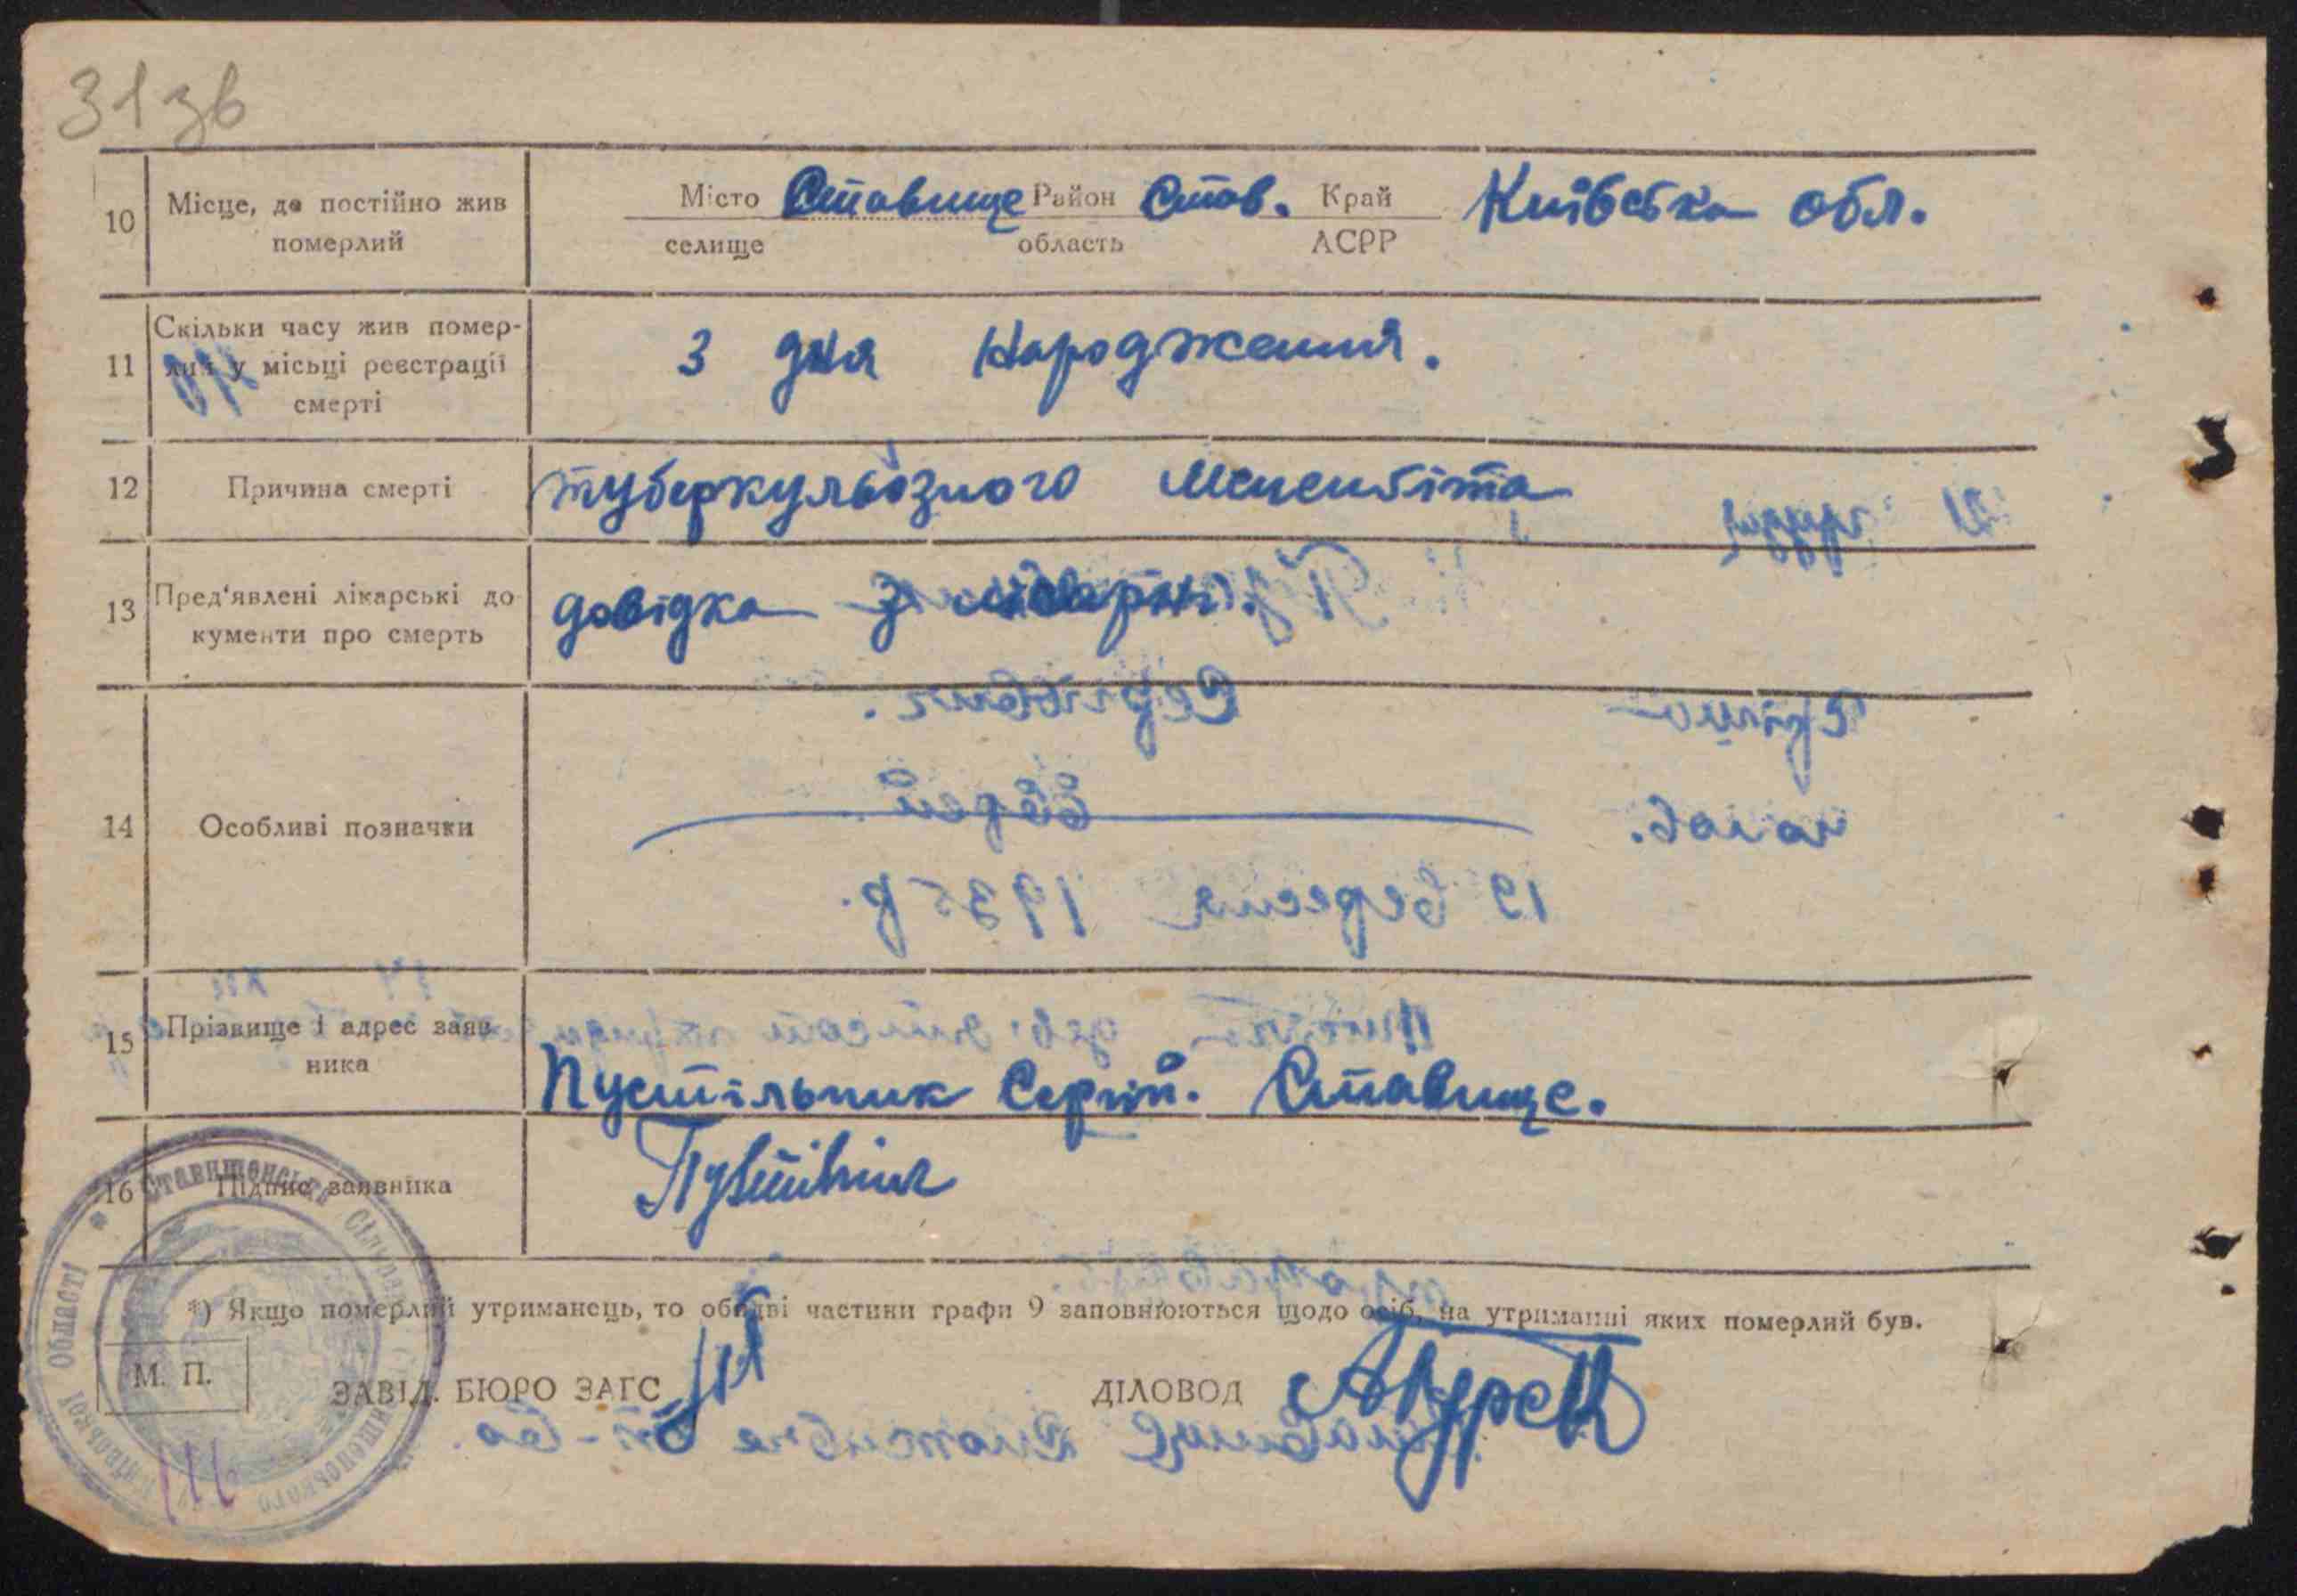 31зв
10 Місце, де постійно жив померлий
Місто Ставище Район Став. Край Київська обл.
селище область АСРР
11 Скільки часу жив помер-
лий у місьці реєстрації
смерті
З дня народження.
12 Причина смерті туберкульозного Мененгіта
13 Пред'явлені лікарські до-
кументи про смерть
довідка З лікарні.
14 Особливі позначки
15 Прізвище і адрес заяв-
ника
Пустільник Сергій. Ставище.
16 Підпис заявника
*) Якщо померлий утриманець, то обидві частини графи 9 заповнюються щодо осіб, на утриманні яких померлий був.
М. П.
ЗАВІД. БЮРО ЗАГС ДІЛОВОД